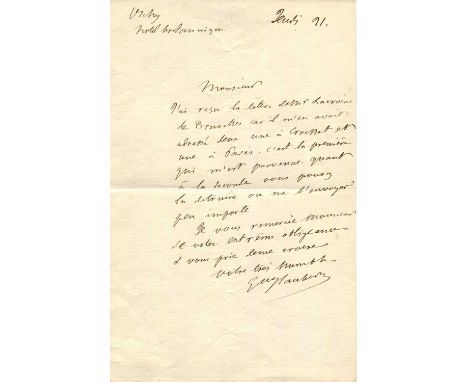 Vichy
hotel britannique
Jeudi 21.
Monsieur
J'ai reçu la lettre de Mr Lacroix
de Bruxelles car il m'en avait
adressé deux une à Croisset et
une à Paris. c'est la première
qui m'est parvenue quant
à la seconde vous pouvez
la détruire ou me l'envoyer
peu importe
Je vous remercie Monsieur
de votre extrême obligeance
& vous prie de me croire
votre très humble
Gve Flaubert